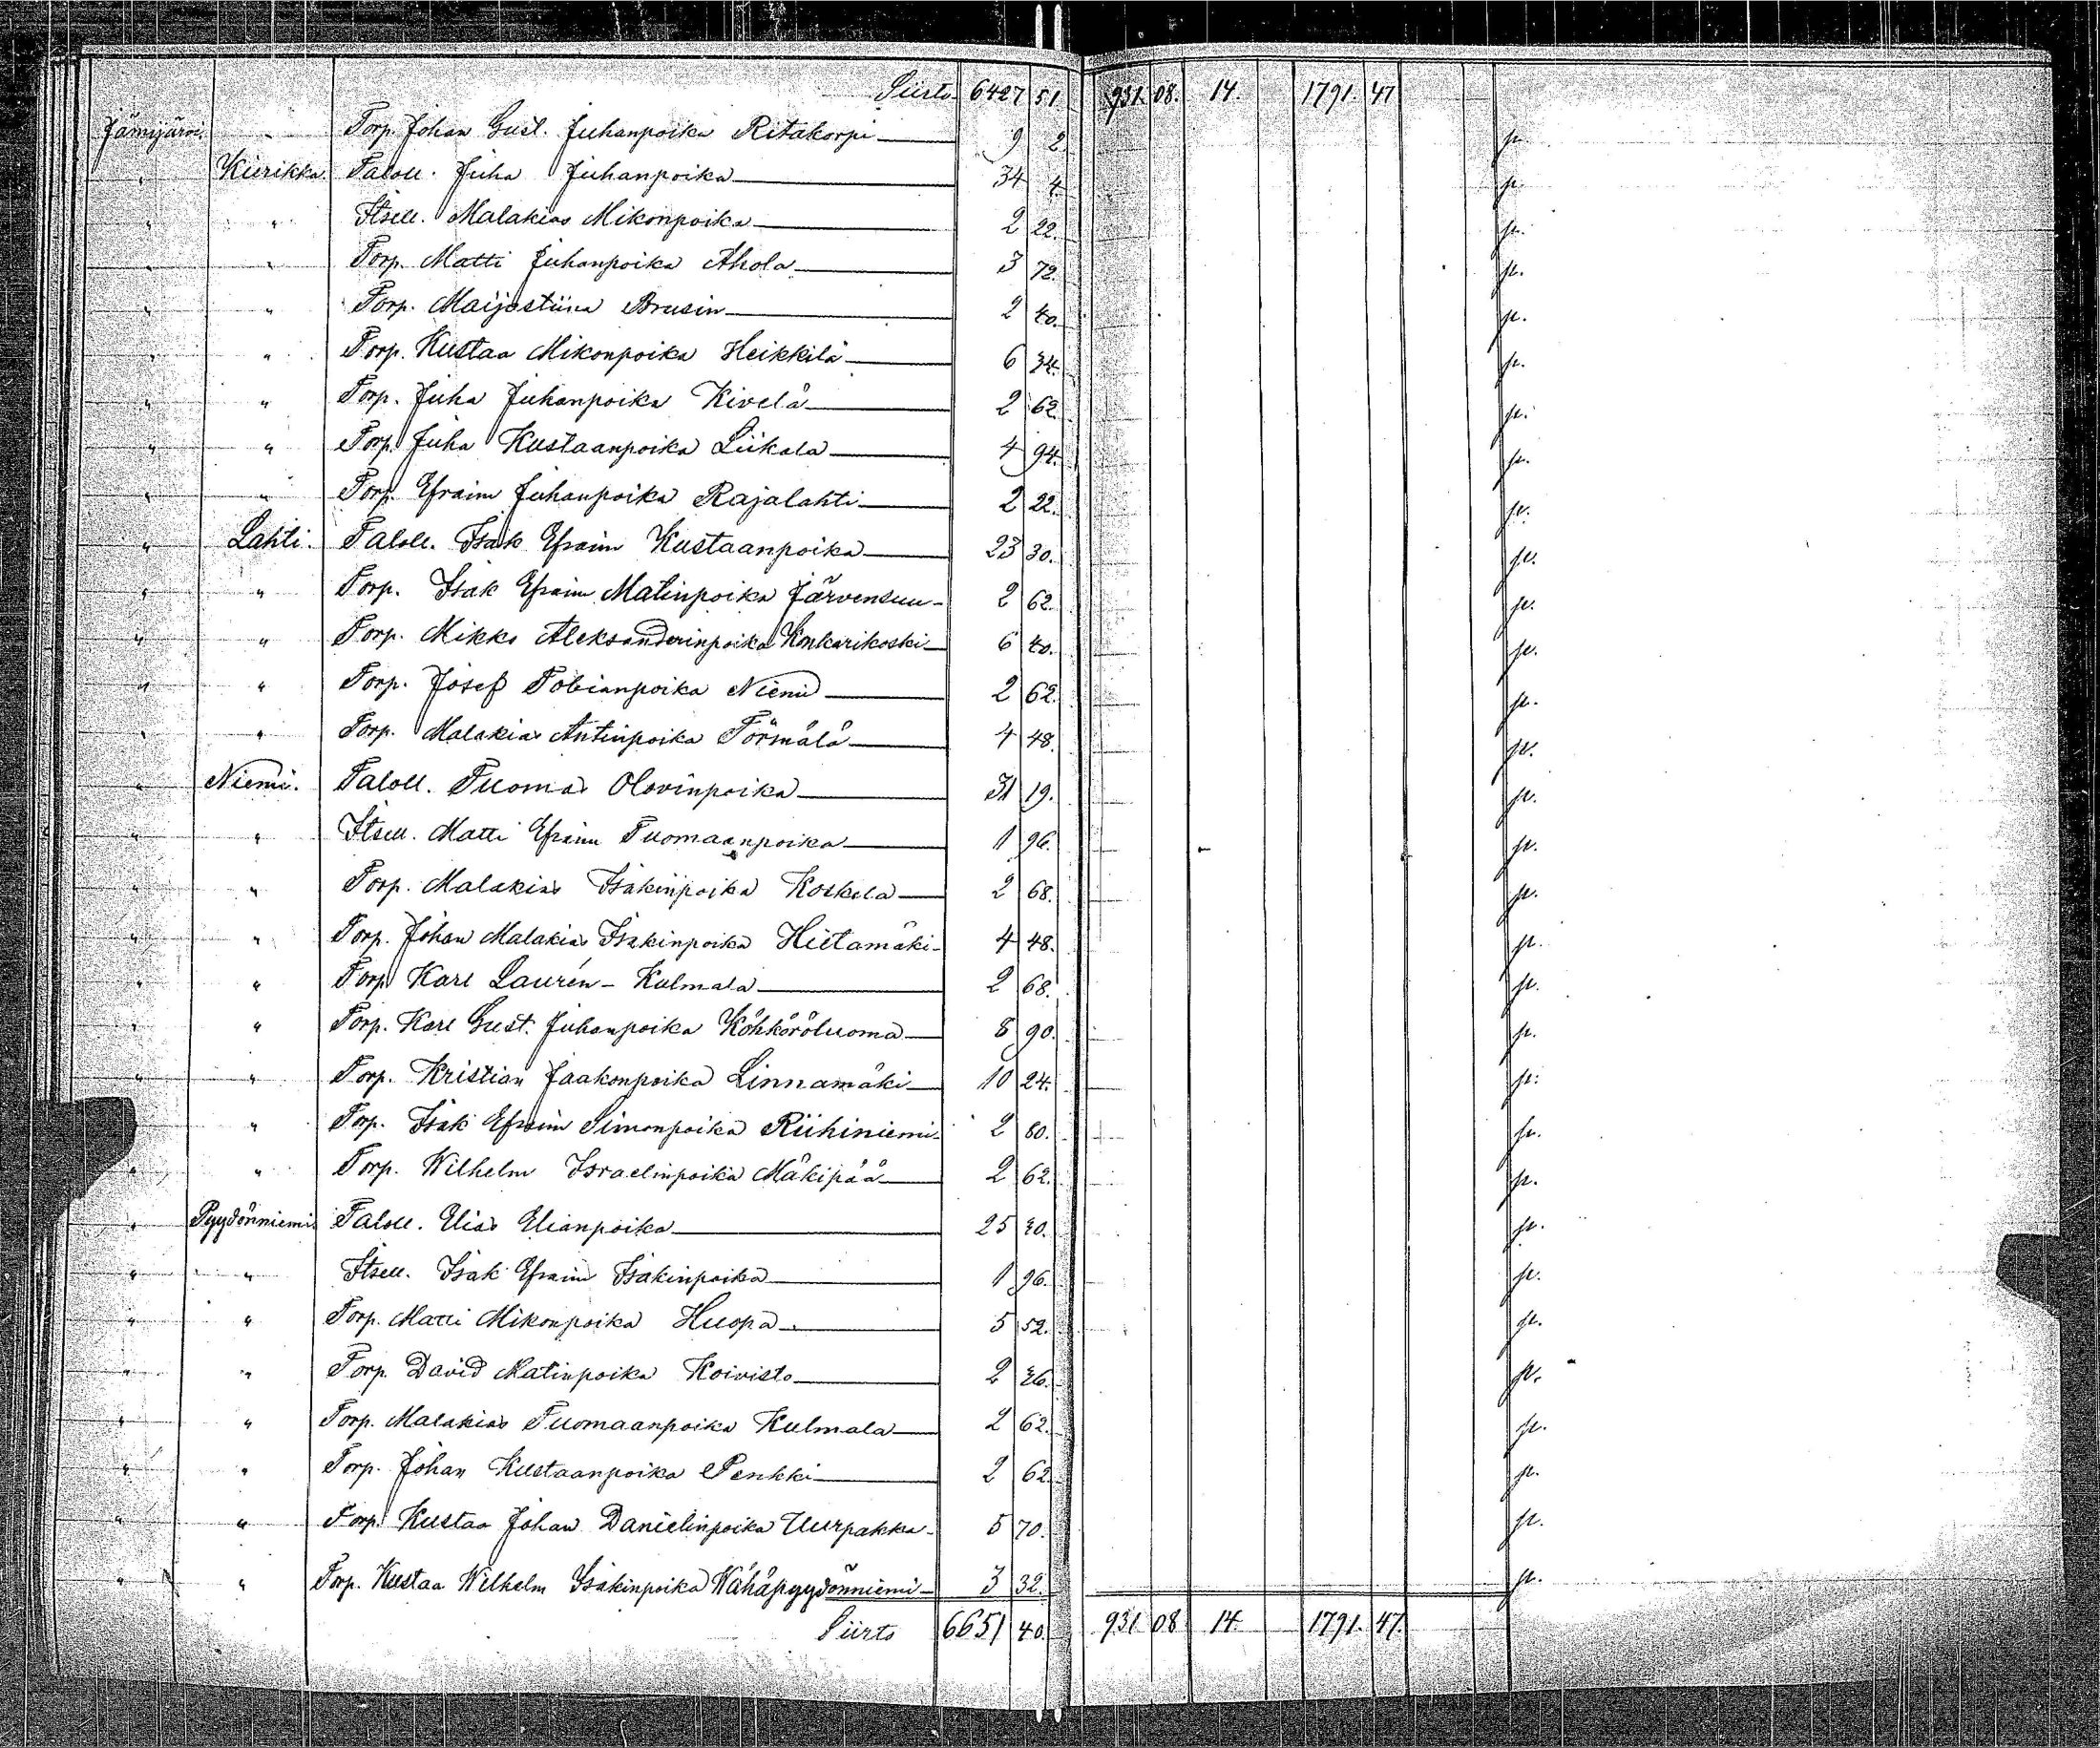 Siirto 6427 51 931. 08. 14. 1791. 47
Jämijärvi. " Torp. Johan Gust. Juhanpoika Ritakorpi 9 2
" Kierikka. Taloll. Juha Juhanpoika 34 4
" " Itsell. Malakias Mikonpoika 2 22.
" " Torp. Matti Juhanpoika Ahola 3 72.
" " Torp. Maijastiina Brusin 2 40.
" " Torp. Kustaa Mikonpoika Heikkilä 6 34.
" " Torp. Juha Juhanpoika Kivelä 2 62
" " Torp. Juha Kustaanpoika Liikala 4 94.
" " Torp. Efraim Juhanpoika Rajalahti 2 22.
" Lahti. Taloll. Isak Efraim Kustaanpoika 23 30.
" " Torp. Isak Efraim Matinpoika Järvensuu 2 62.
" " Torp. Mikko Aleksanderinpoika Konkarikoski 6 40.
" " Torp. Josef Tobianpoika Niemi 2 62.
" " Torp. Malakias Antinpoika Törmälä 4 48.
" Niemi. Taloll. Tuomas Olovinpoika 31 19.
" " Itsell. Matti Efraim Tuomaanpoika 1 96.
" " Torp. Malakias Isakinpoika Koskela 2 68.
" " Torp. Johan Malakias Isakinpoika Hietamäki 4 48.
" " Torp. Karl Laurén - Kulmala 2 68.
" " Torp. Karl Gust. Juhanpoika Köhköröluoma 8 90.
" " Torp. Kristian Jaakonpoika Linnamäki 10 24.
" Torp. Isak Efraim Simonpoika Riihiniemi 2 80.
" " Torp. Wilhelm Israelinpoika Mäkipää 2 62.
" Pyydönniemi Taloll. Elias Elianpoika 25 30.
" " Itsell. Isak Efraim Isakinpoika 1 96.
" " Torp. Matti Mikonpoika Huopa 5 52.
" Torp. David Matinpoika Koivisto 2 36.
" " Torp. Malakias Tuomaanpoika Kulmala 2 62.
" " Torp. Johan Kustaanpoika Penkki 2 62
" " Torp. Kustaa Johan Danielinpoika Uurpakka 5 70.
" " Torp. Kustaa Wilhelm Isakinpoika Wähäpyydönniemi 3 32.
Siirto 6651 40. 931. 08 14. 1791. 47.